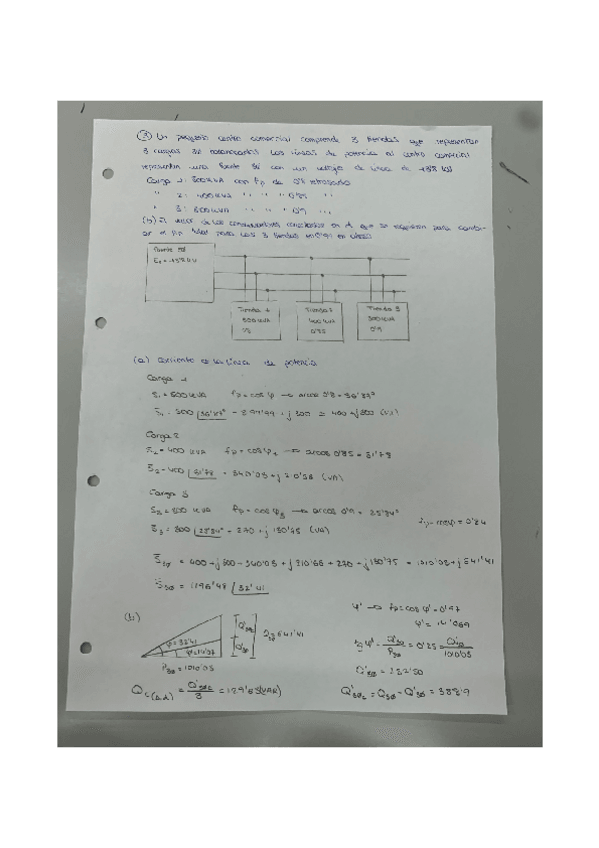 ③ Un pequeño centro comercial comprende 3 tiendas que representan
3 cargas 3Ø Las líneas de potencia al centro comercial
representan una fuente 3Ø con un voltaje de línea de kV
Carga 1: 500 kVA con fp de 0'8 retrasado
" 2: 400 kVA " " " 0'85 "
" 3: 300 kVA " " " 0'9 "
(b) El valor de los conectados en Δ que se requieren para
ar el fp total para las 3 tiendas en 0'97 en
Fuente 3Ø
kV
Tienda 1
500 kVA
Tienda 2
400 kVA
0'85
Tienda 3
300 kVA
0'9
(a) Corriente en las línea de potencia
Carga 1
S₁ = 500 kVA fp = cos φ → arcos 0'8 = 36'87°
S̄₁ = 500 |36'87° = + j 300 = 400 + j300 (VA)
Carga 2
S₂ = 400 kVA fp = cos φ₂ → arcos 0'85 = 31'78
S̄₂ = 400 |31'78 = 340'05 + j (VA)
Carga 3
fp = cos φ₃ → arcos 0'9 = 25'84°
S̄₃ = 300 |25'84° = 270 + j 130'75 (VA)
= 0'84
S̄₃Ø = 400 + j300 + 340'05 + j 210'66 + 270 + j 130'75 = 1010'05 + j 641'41
S̄₃Ø = 1196'48 |32'41
(b)
φ = 32'41
P₃Ø = 1010'05
641'41
φ' → fp = cos φ' = 0'97
φ' = 14'069
tg φ' = Q'₃Ø / P₃Ø = 0'25 = Q'₃Ø / 1010'05
Q'₃Ø = 252'50
Q c(Δ) = Q'₃Øc / 3 = 129'63 (VAR)
Q'₃Øc = Q₃Ø - Q'₃Ø = 388'9